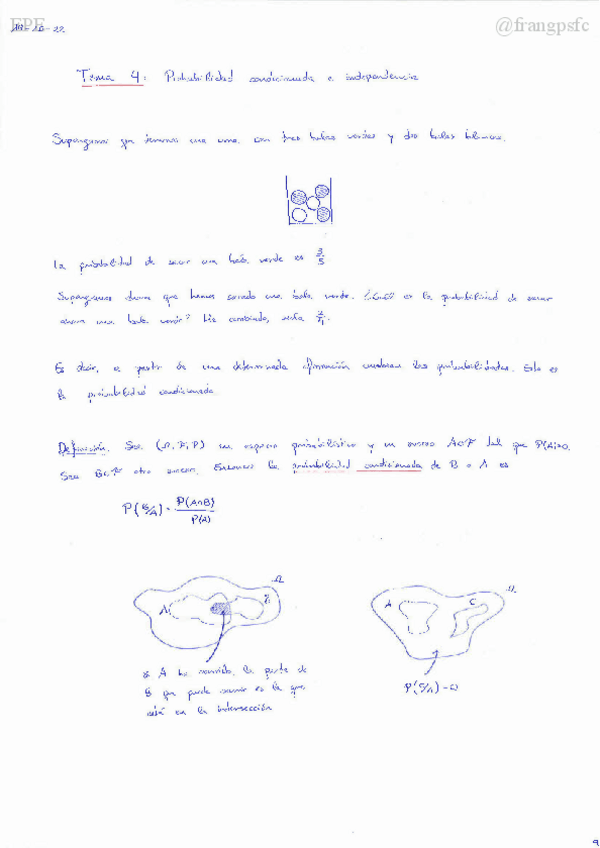 EPE
@frangpsfc
Tema 4: Probabilidad condicionada e independencia
Supongamos que tenemos una urna con tres bolas verdes y dos bolas blancas.
La probabilidad de sacar una bola verde es 3/5
Supongamos ahora que hemos sacado una bola verde. ¿Cuál es la probabilidad de sacar
ahora una bola verde? Ha cambiado, sería 2/4.
Es decir, a partir de una determinada información cambian las probabilidades. Esto es
la probabilidad condicionada.
Definición. Sea (Ω, F, P) un espacio probabilístico y un suceso A∈F tal que P(A)>0.
Sea B∈F otro suceso. Entonces la probabilidad condicionada de B a A es
P(B/A) = P(A∩B)/P(A)
Ω
A
B
Ω
A
C
Si A ha ocurrido, la parte de
B que puede ocurrir es la que
está en la intersección
P(C/A) = 0